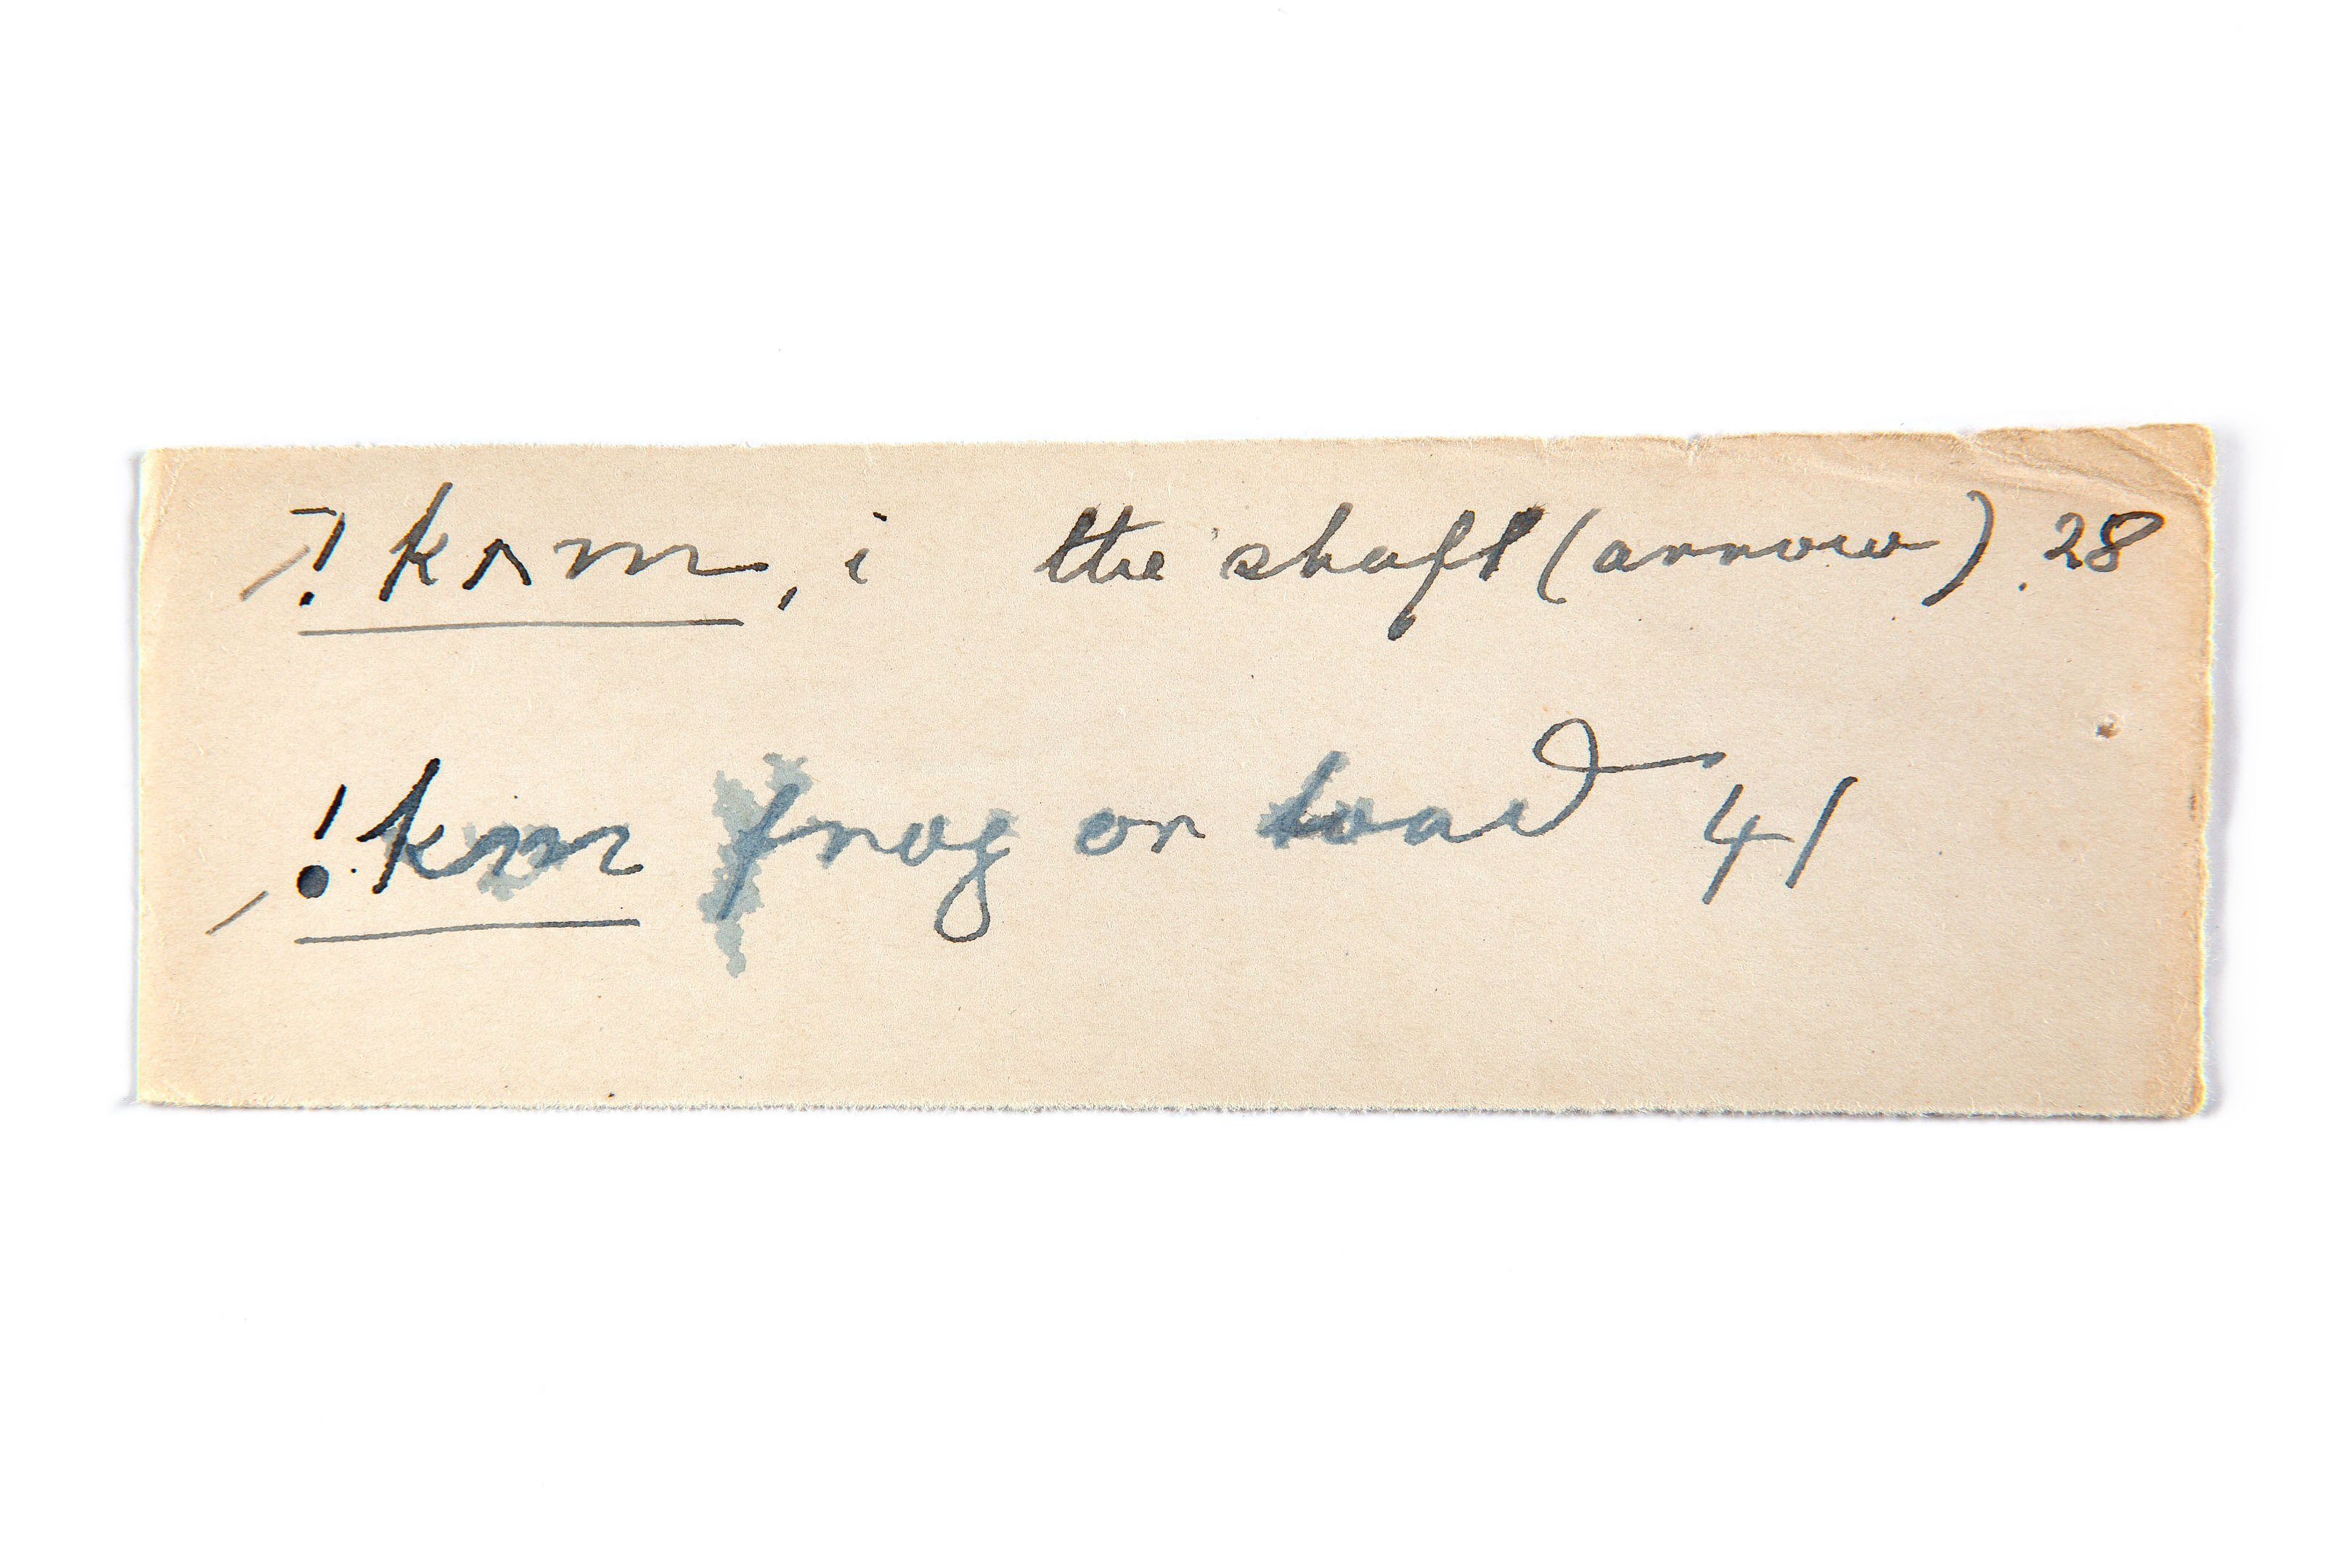 ⁊!kʌm, i the shaft (arrow). 28
!km frog or toad 41